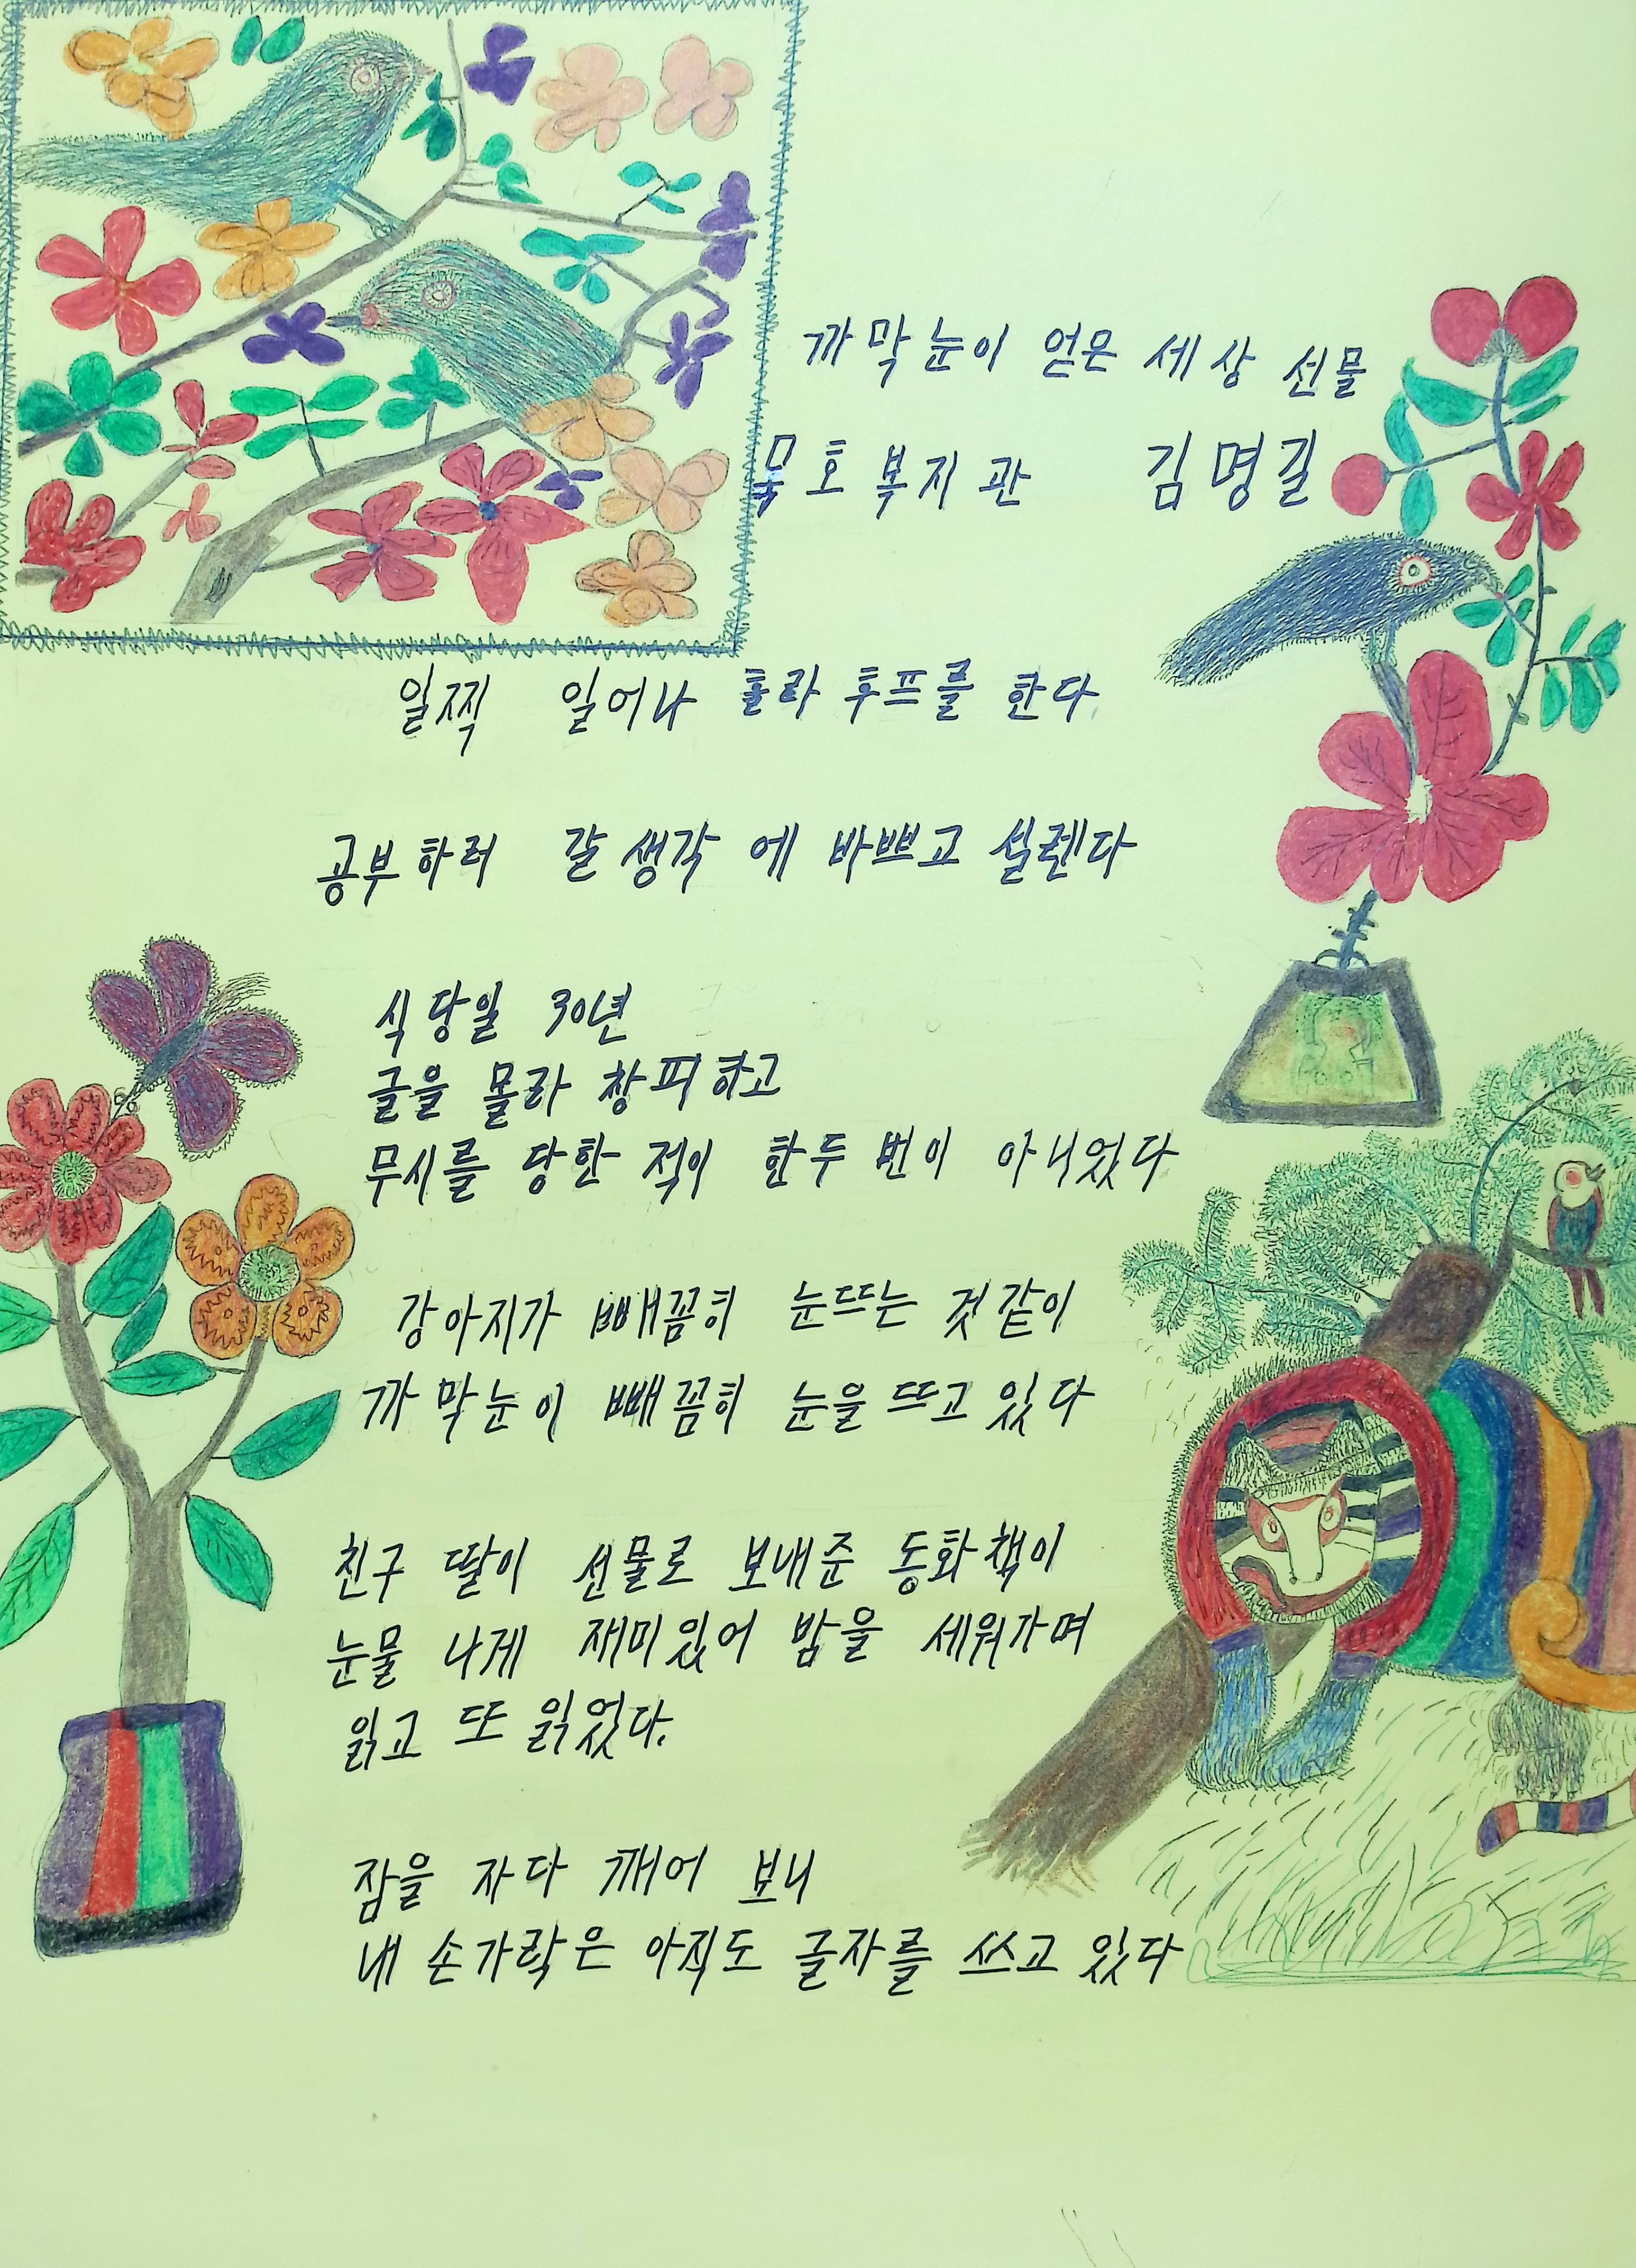 까막눈이 얻은 세상 선물
묵호복지관 김명길
일찍 일어나 훌라후프를 한다.
공부하러 갈 생각에 바쁘고 설렌다
식당일 30년
글을 몰라 창피하고
무시를 당한 적이 한두 번이 아니었다
강아지가 빼꼼히 눈뜨는 것같이
까막눈이 빼꼼히 눈을 뜨고 있다
친구 딸이 선물로 보내준 동화책이
눈물 나게 재미있어 밤을 세워가며
읽고 또 읽었다.
잠을 자다 깨어 보니
내 손가락은 아직도 글자를 쓰고 있다